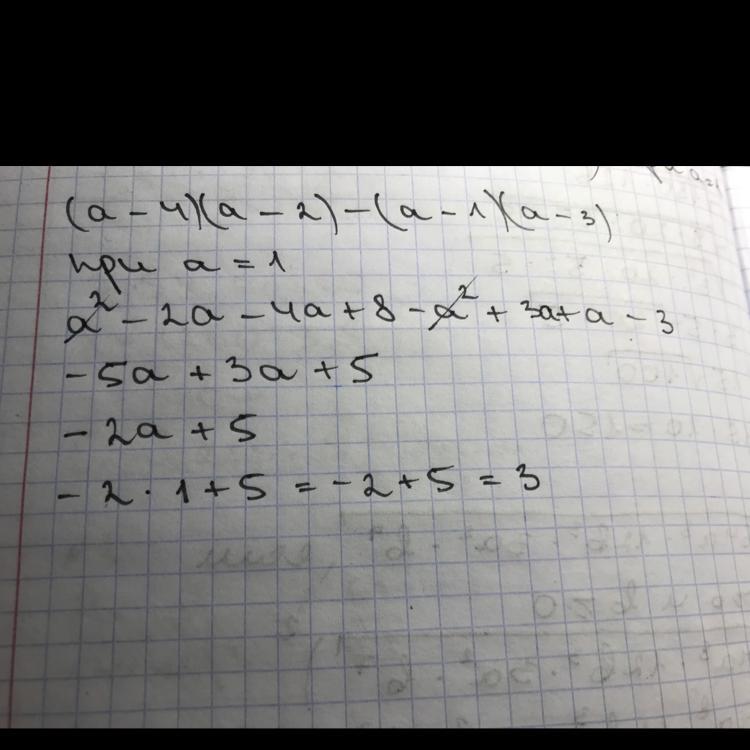 (a - 4)(a - 2) - (a - 1)(a - 3)
при a = 1
a² - 2a - 4a + 8 - a² + 3a + a - 3
- 5a + 3a + 5
- 2a + 5
- 2 · 1 + 5 = - 2 + 5 = 3